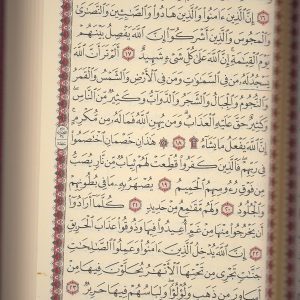 ﴿١٦﴾ إِنَّ الَّذِينَ ءَامَنُوا وَالَّذِينَ هَادُوا وَالصَّٰبِـِٔينَ وَالنَّصَٰرَىٰ
وَالْمَجُوسَ وَالَّذِينَ أَشْرَكُوا إِنَّ اللَّهَ يَفْصِلُ بَيْنَهُمْ
يَوْمَ الْقِيَٰمَةِ إِنَّ اللَّهَ عَلَىٰ كُلِّ شَىْءٍ شَهِيدٌ ﴿١٧﴾ أَلَمْ تَرَ أَنَّ اللَّهَ
يَسْجُدُ لَهُ مَن فِى السَّمَٰوَٰتِ وَمَن فِى الْأَرْضِ وَالشَّمْسُ وَالْقَمَرُ
وَالنُّجُومُ وَالْجِبَالُ وَالشَّجَرُ وَالدَّوَابُّ وَكَثِيرٌ مِّنَ النَّاسِ
وَكَثِيرٌ حَقَّ عَلَيْهِ الْعَذَابُ وَمَن يُهِنِ اللَّهُ فَمَا لَهُ مِن مُّكْرِمٍ
إِنَّ اللَّهَ يَفْعَلُ مَا يَشَاءُ ۩ ﴿١٨﴾ هَٰذَانِ خَصْمَانِ اخْتَصَمُوا
فِى رَبِّهِمْ فَالَّذِينَ كَفَرُوا قُطِّعَتْ لَهُمْ ثِيَابٌ مِّن نَّارٍ يُصَبُّ
مِن فَوْقِ رُءُوسِهِمُ الْحَمِيمُ ﴿١٩﴾ يُصْهَرُ بِهِ مَا فِى بُطُونِهِمْ
وَالْجُلُودُ ﴿٢٠﴾ وَلَهُم مَّقَٰمِعُ مِنْ حَدِيدٍ ﴿٢١﴾ كُلَّمَا أَرَادُوا
أَن يَخْرُجُوا مِنْهَا مِنْ غَمٍّ أُعِيدُوا فِيهَا وَذُوقُوا عَذَابَ الْحَرِيقِ
﴿٢٢﴾ إِنَّ اللَّهَ يُدْخِلُ الَّذِينَ ءَامَنُوا وَعَمِلُوا الصَّٰلِحَٰتِ
جَنَّٰتٍ تَجْرِى مِن تَحْتِهَا الْأَنْهَٰرُ يُحَلَّوْنَ فِيهَا مِنْ
أَسَاوِرَ مِن ذَهَبٍ وَلُؤْلُؤًا وَلِبَاسُهُمْ فِيهَا حَرِيرٌ ﴿٢٣﴾